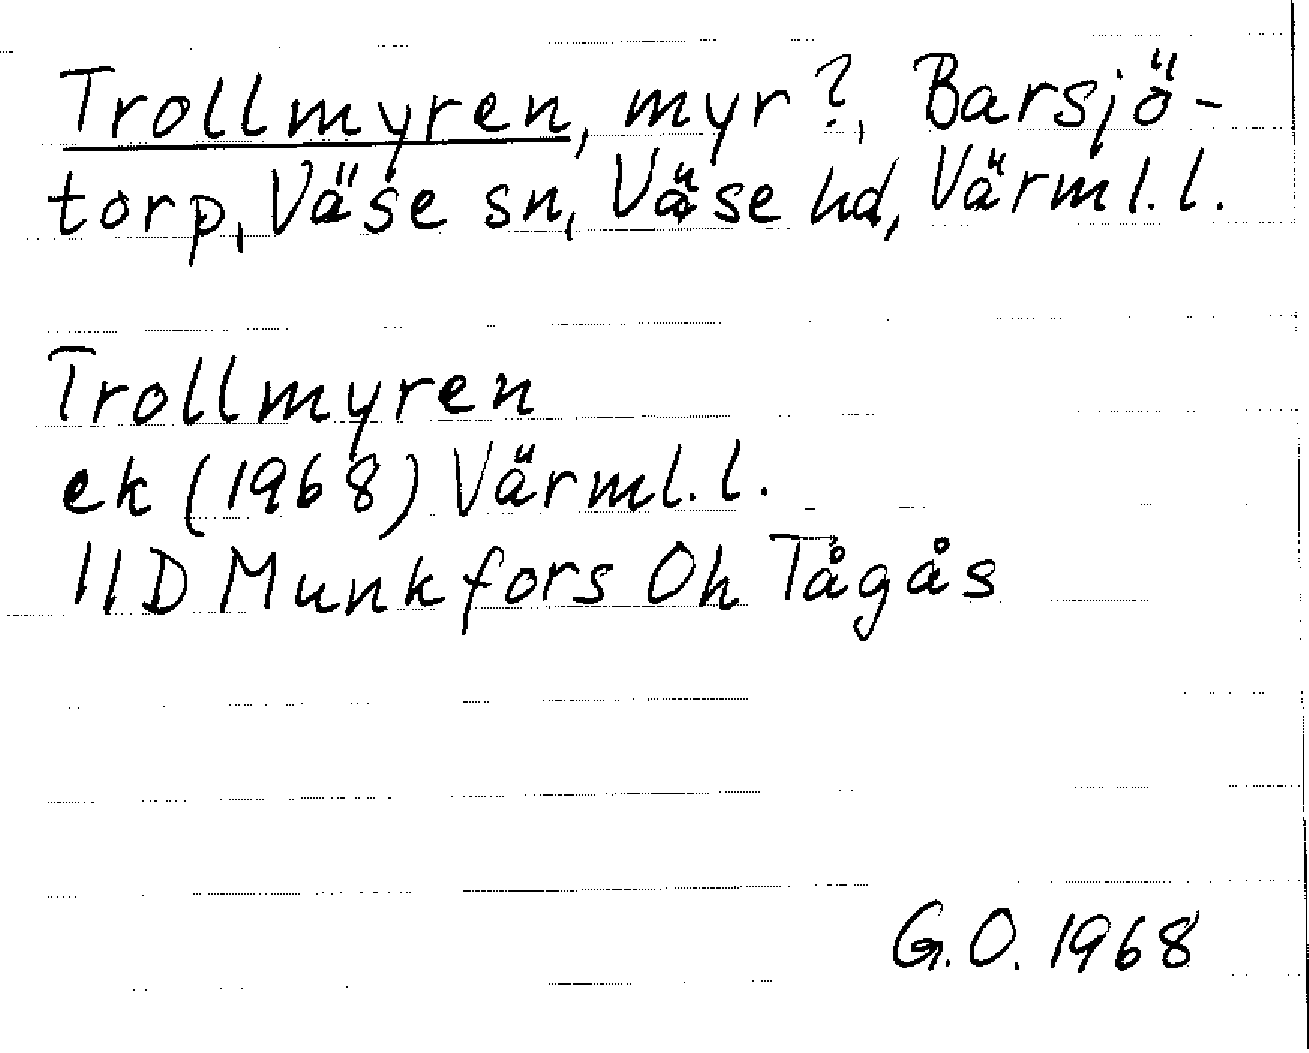 Trollmyren, myr?, Barsjö-
torp, Väse sn, Väse hd, Värml. l.
Trollmyren
ek (1968) Värml. l.
11D Munkfors Oh Tågås
G.O. 1968